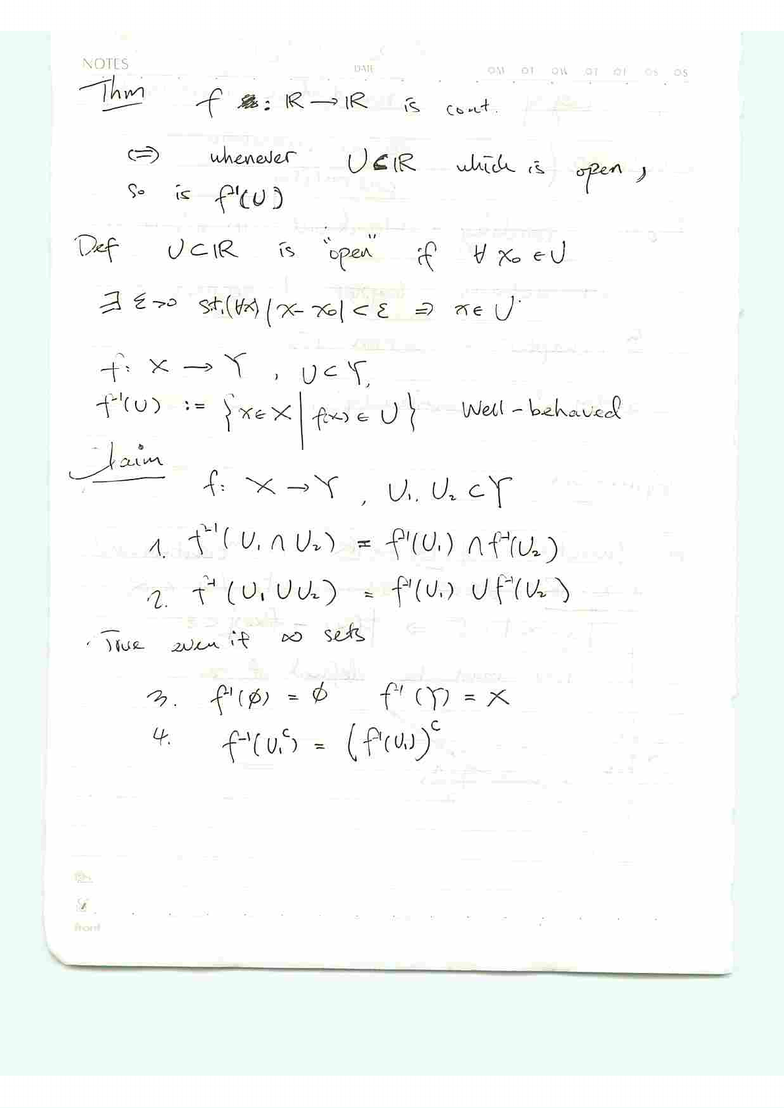 NOTES
DATE
Thm f : ℝ → ℝ is cont.
⟺ whenever U⊂ℝ which is open,
so is f⁻¹(U)
Def U⊂ℝ is "open" if ∀ x₀ ∈ U
∃ ε>0 s.t. (∀x) |x - x₀| < ε ⇒ x ∈ U
f: X → Y , U⊂Y,
f⁻¹(U) := {x∈X | f(x) ∈ U} Well-behaved
Claim
f: X → Y , U₁, U₂ ⊂ Y
1. f⁻¹(U₁ ∩ U₂) = f⁻¹(U₁) ∩ f⁻¹(U₂)
2. f⁻¹(U₁ ∪ U₂) = f⁻¹(U₁) ∪ f⁻¹(U₂)
· True even if ∞ sets
3. f⁻¹(∅) = ∅ f⁻¹(Y) = X
4. f⁻¹(U₁ᶜ) = (f⁻¹(U₁))ᶜ
front